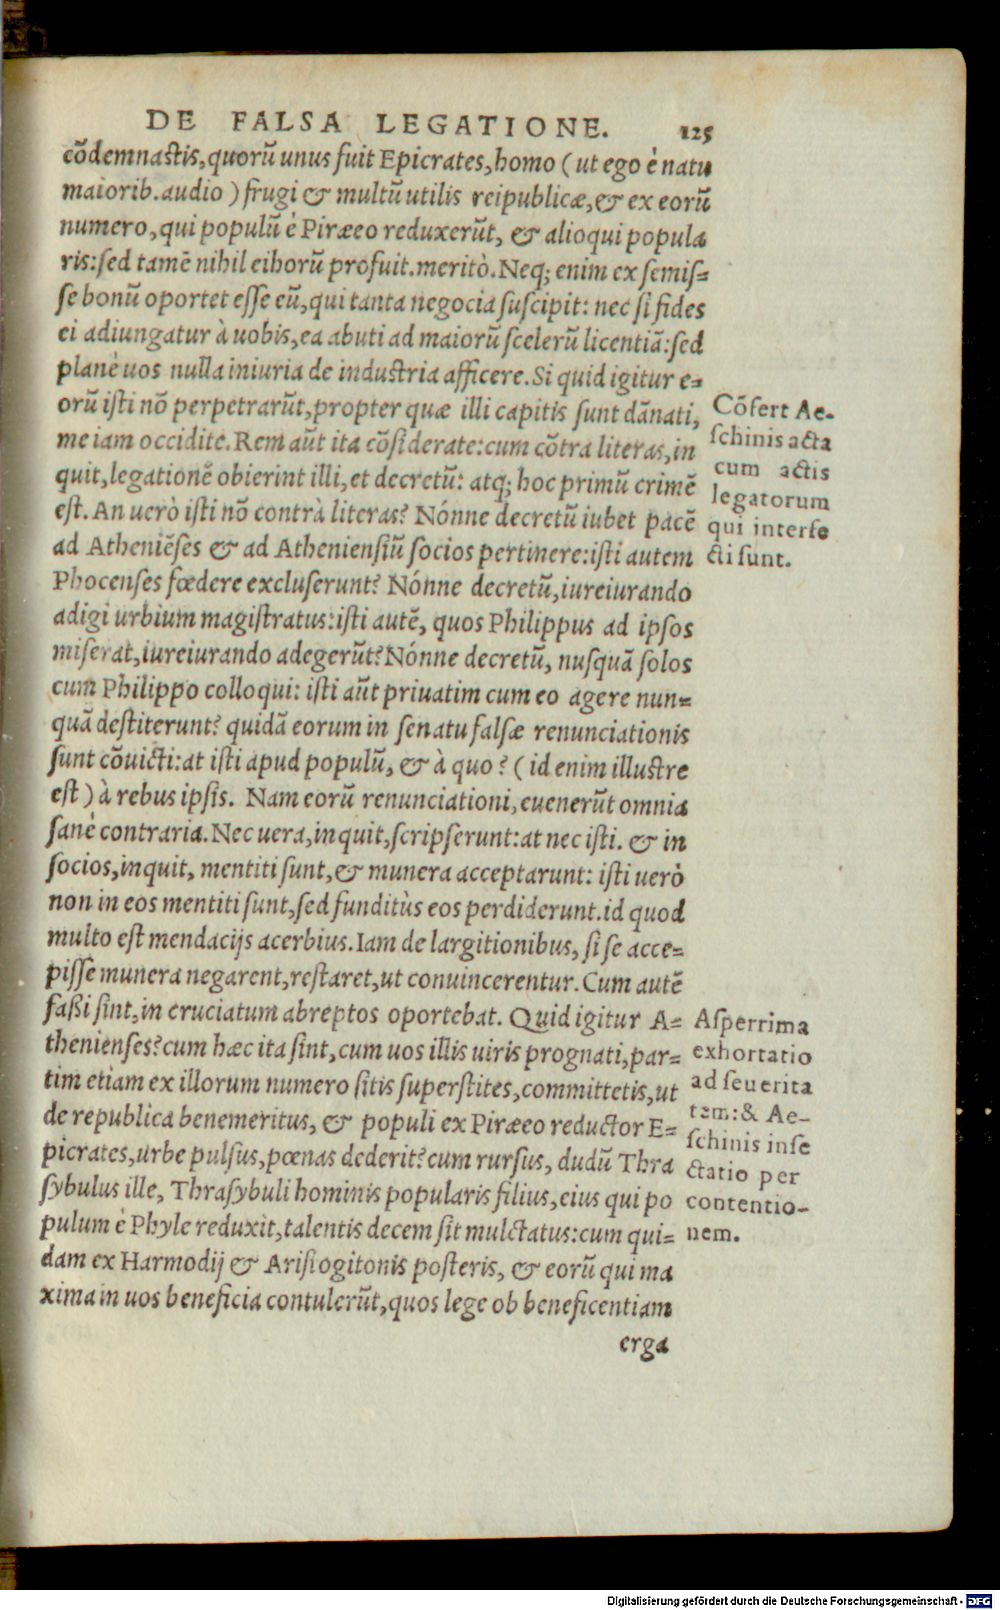 DE FALSA LEGATIONE. 125
cõdemnastis, quorũ unus fuit Epicrates, homo (ut ego è natu
maiorib. audio) frugi & multũ utilis reipublicæ, & ex eorũ
numero, qui populũ è Piræeo reduxerũt, & alioqui popula
ris: sed tamẽ nihil ei horũ profuit. meritò. Neq; enim ex semis-
se bonũ oportet esse eũ, qui tanta negocia suscipit: nec si fides
ei adiungatur à uobis, ea abuti ad maiorũ scelerũ licentiã: sed
planè uos nulla iniuria de industria afficere. Si quid igitur e-
orũ isti nõ perpetrarũt, propter quæ illi capitis sunt dãnati,
me iam occidite. Rem aũt ita cõsiderate: cum cõtra literas, in
quit, legationẽ obierint illi, et decretũ: atq; hoc primũ crimẽ
est. An uerò isti nõ contrà literas? Nónne decretũ iubet pacẽ
ad Atheniẽses & ad Atheniensiũ socios pertinere: isti autem
Phocenses fœdere excluserunt? Nónne decretũ, iureiurando
adigi urbium magistratus: isti autẽ, quos Philippus ad ipsos
miserat, iureiurando adegerũt? Nónne decretũ, nusquã solos
cum Philippo colloqui: isti aũt priuatim cum eo agere nun-
quã destiterunt? quidã eorum in senatu falsæ renunciationis
sunt cõuicti: at isti apud populũ, & à quo? (id enim illustre
est) à rebus ipsis. Nam eorũ renunciationi, euenerũt omnia
sanè contraria. Nec uera, inquit, scripserunt: at nec isti. & in
socios, inquit, mentiti sunt, & munera acceptarunt: isti uerò
non in eos mentiti sunt, sed funditùs eos perdiderunt. id quod
multo est mendacijs acerbius. Iam de largitionibus, si se acce-
pisse munera negarent, restaret, ut conuincerentur. Cum autẽ
faßi sint, in cruciatum abreptos oportebat. Quid igitur A-
thenienses? cum hæc ita sint, cum uos illis uiris prognati, par-
tim etiam ex illorum numero sitis superstites, committetis, ut
de republica benemeritus, & populi ex Piræeo reductor E-
picrates, urbe pulsus, pœnas dederit? cum rursus, dudũ Thra
sybulus ille, Thrasybuli hominis popularis filius, eius qui po
pulum è Phyle reduxit, talentis decem sit mulctatus: cum qui-
dam ex Harmodij & Arisiogitonis posteris, & eorũ qui ma
xima in uos beneficia contulerũt, quos lege ob beneficentiam
erga
Cõfert Ae-
schinis acta
cum actis
legatorum
qui interfe
cti sunt.
Asperrima
exhortatio
ad seuerita
tem: & Ae-
schinis inse
ctatio per
contentio-
nem.
Digitalisierung gefördert durch die Deutsche Forschungsgemeinschaft - DFG